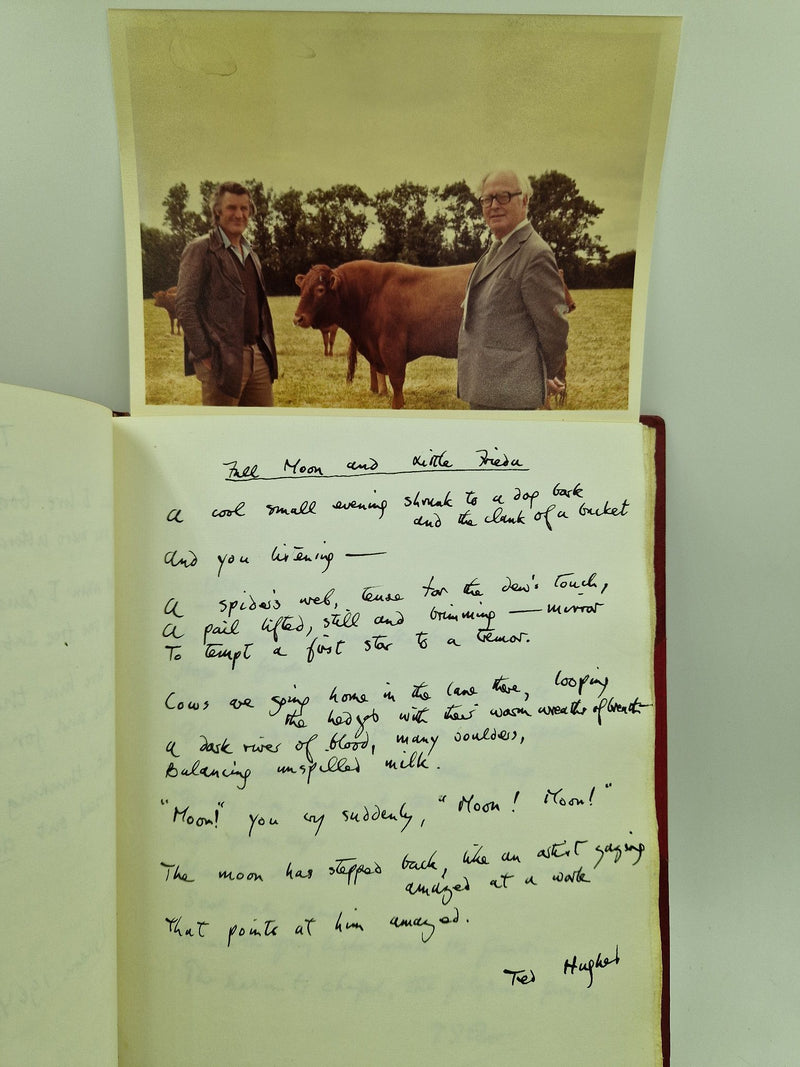 Full Moon and Little Frieda
A cool small evening shrunk to a dog bark
and the clank of a bucket
And you listening —
A spider's web, tense for the dew's touch,
A pail lifted, still and brimming — mirror
To tempt a first star to a tremor.
Cows are going home in the lane there, looping
the hedges with their warm wreaths of breath —
A dark river of blood, many boulders,
Balancing unspilled milk.
"Moon!" you cry suddenly, "Moon! Moon!"
The moon has stepped back, like an artist gazing
amazed at a work
That points at him amazed.
Ted Hughes